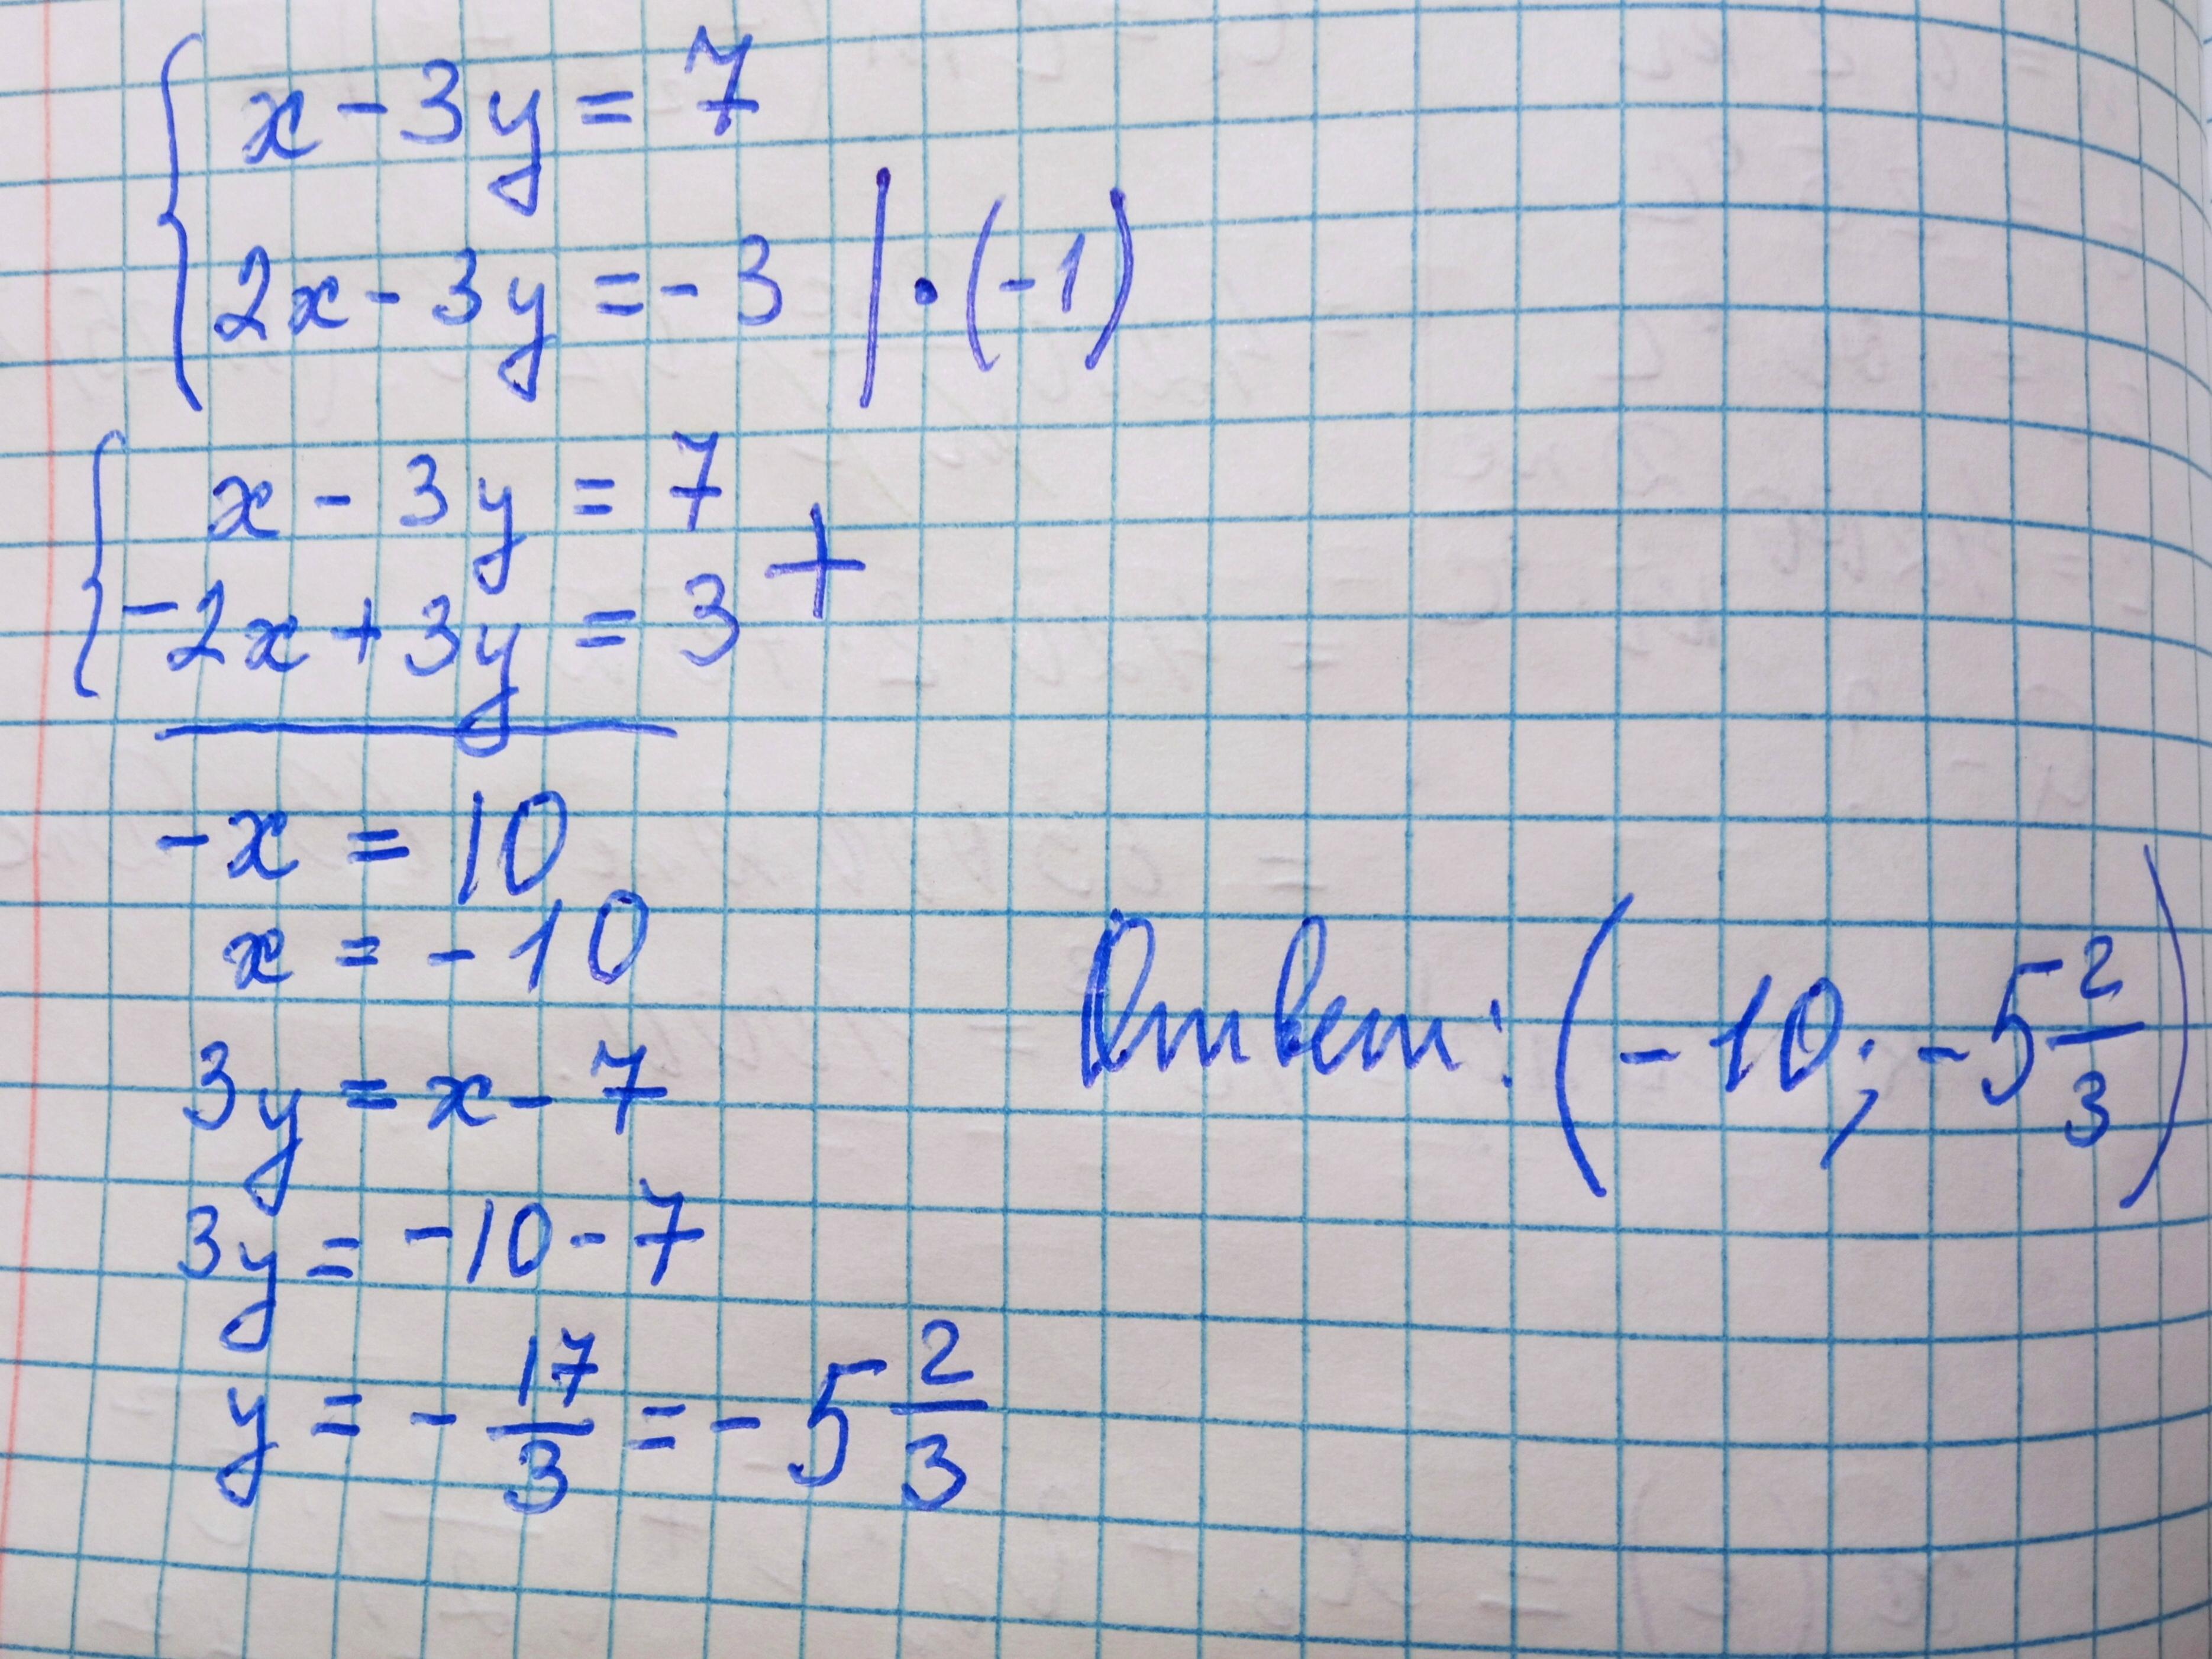 x - 3y = 7
2x - 3y = -3 | · (-1)
x - 3y = 7
+
-2x + 3y = 3
-x = 10
x = -10
3y = x - 7
3y = -10 - 7
y = - 17/3 = - 5 2/3
Ответ: (-10; -5 2/3)